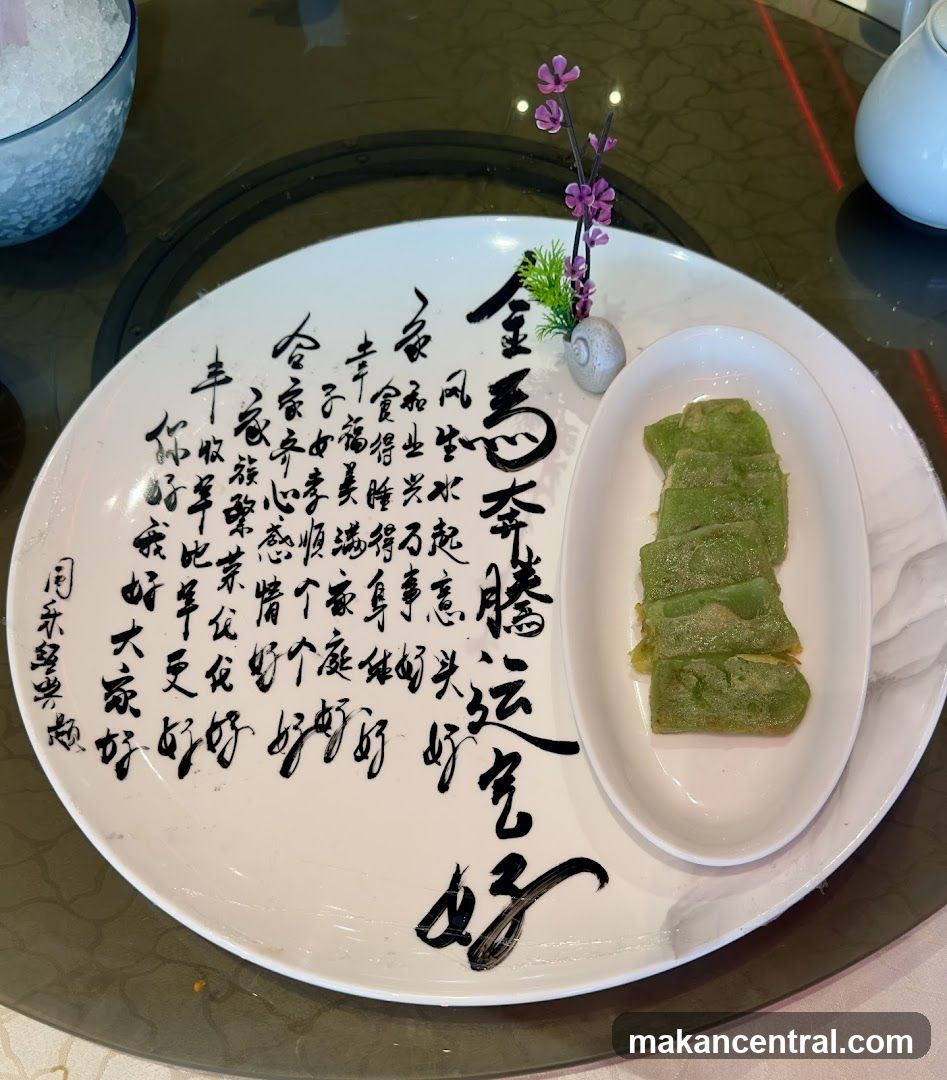 金馬奔騰运气好
风生水起意头好
家和业兴万事好
食得睡得身体好
幸福美满家庭好
子女孝顺个个好
合家齐心感情好
家族繁荣代代好
丰收年比年更好
你好我好大家好
同乐经典题
makancentral.com